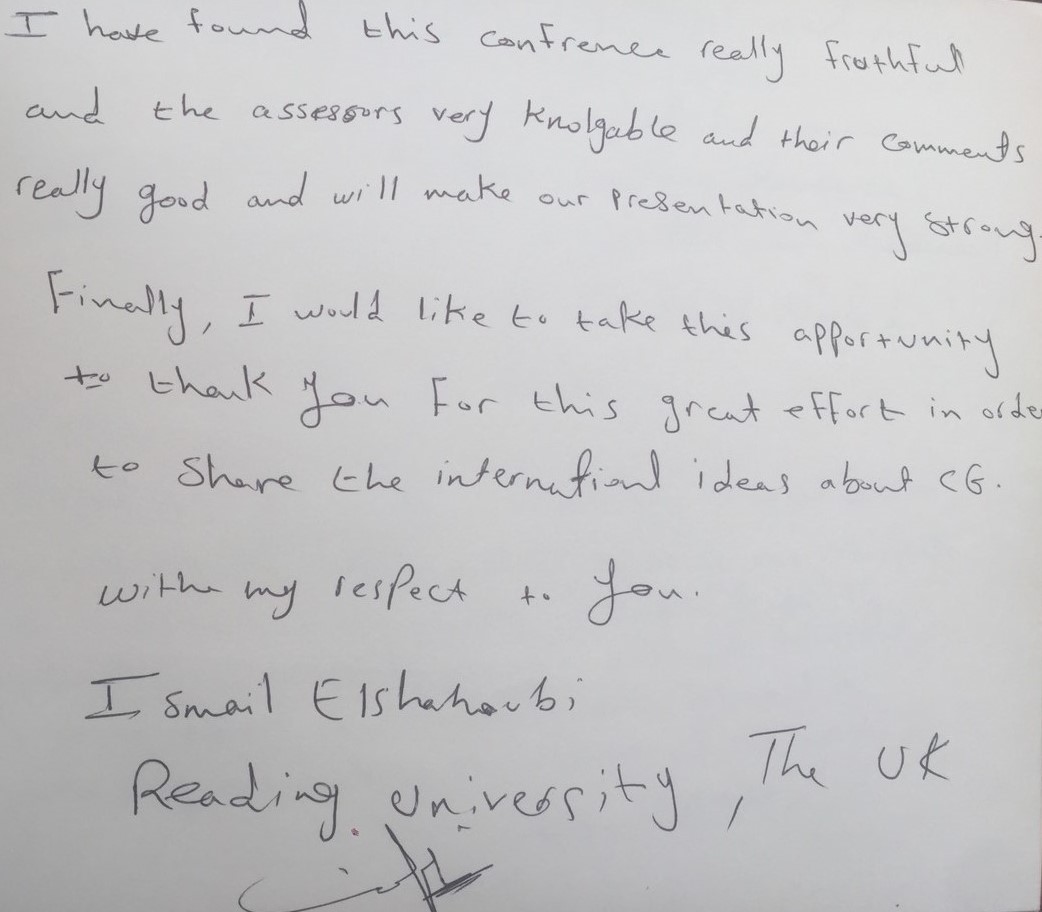 I have found this confrence really fruthful
and the assessors very knolgable and their comments
really good and will make our presentation very strong.
Finally, I would like to take this apportunity
to thank you for this great effort in orde
to share the internationl ideas about CG.
with my respect to you.
Ismail Elshahoubi
Reading university, The UK